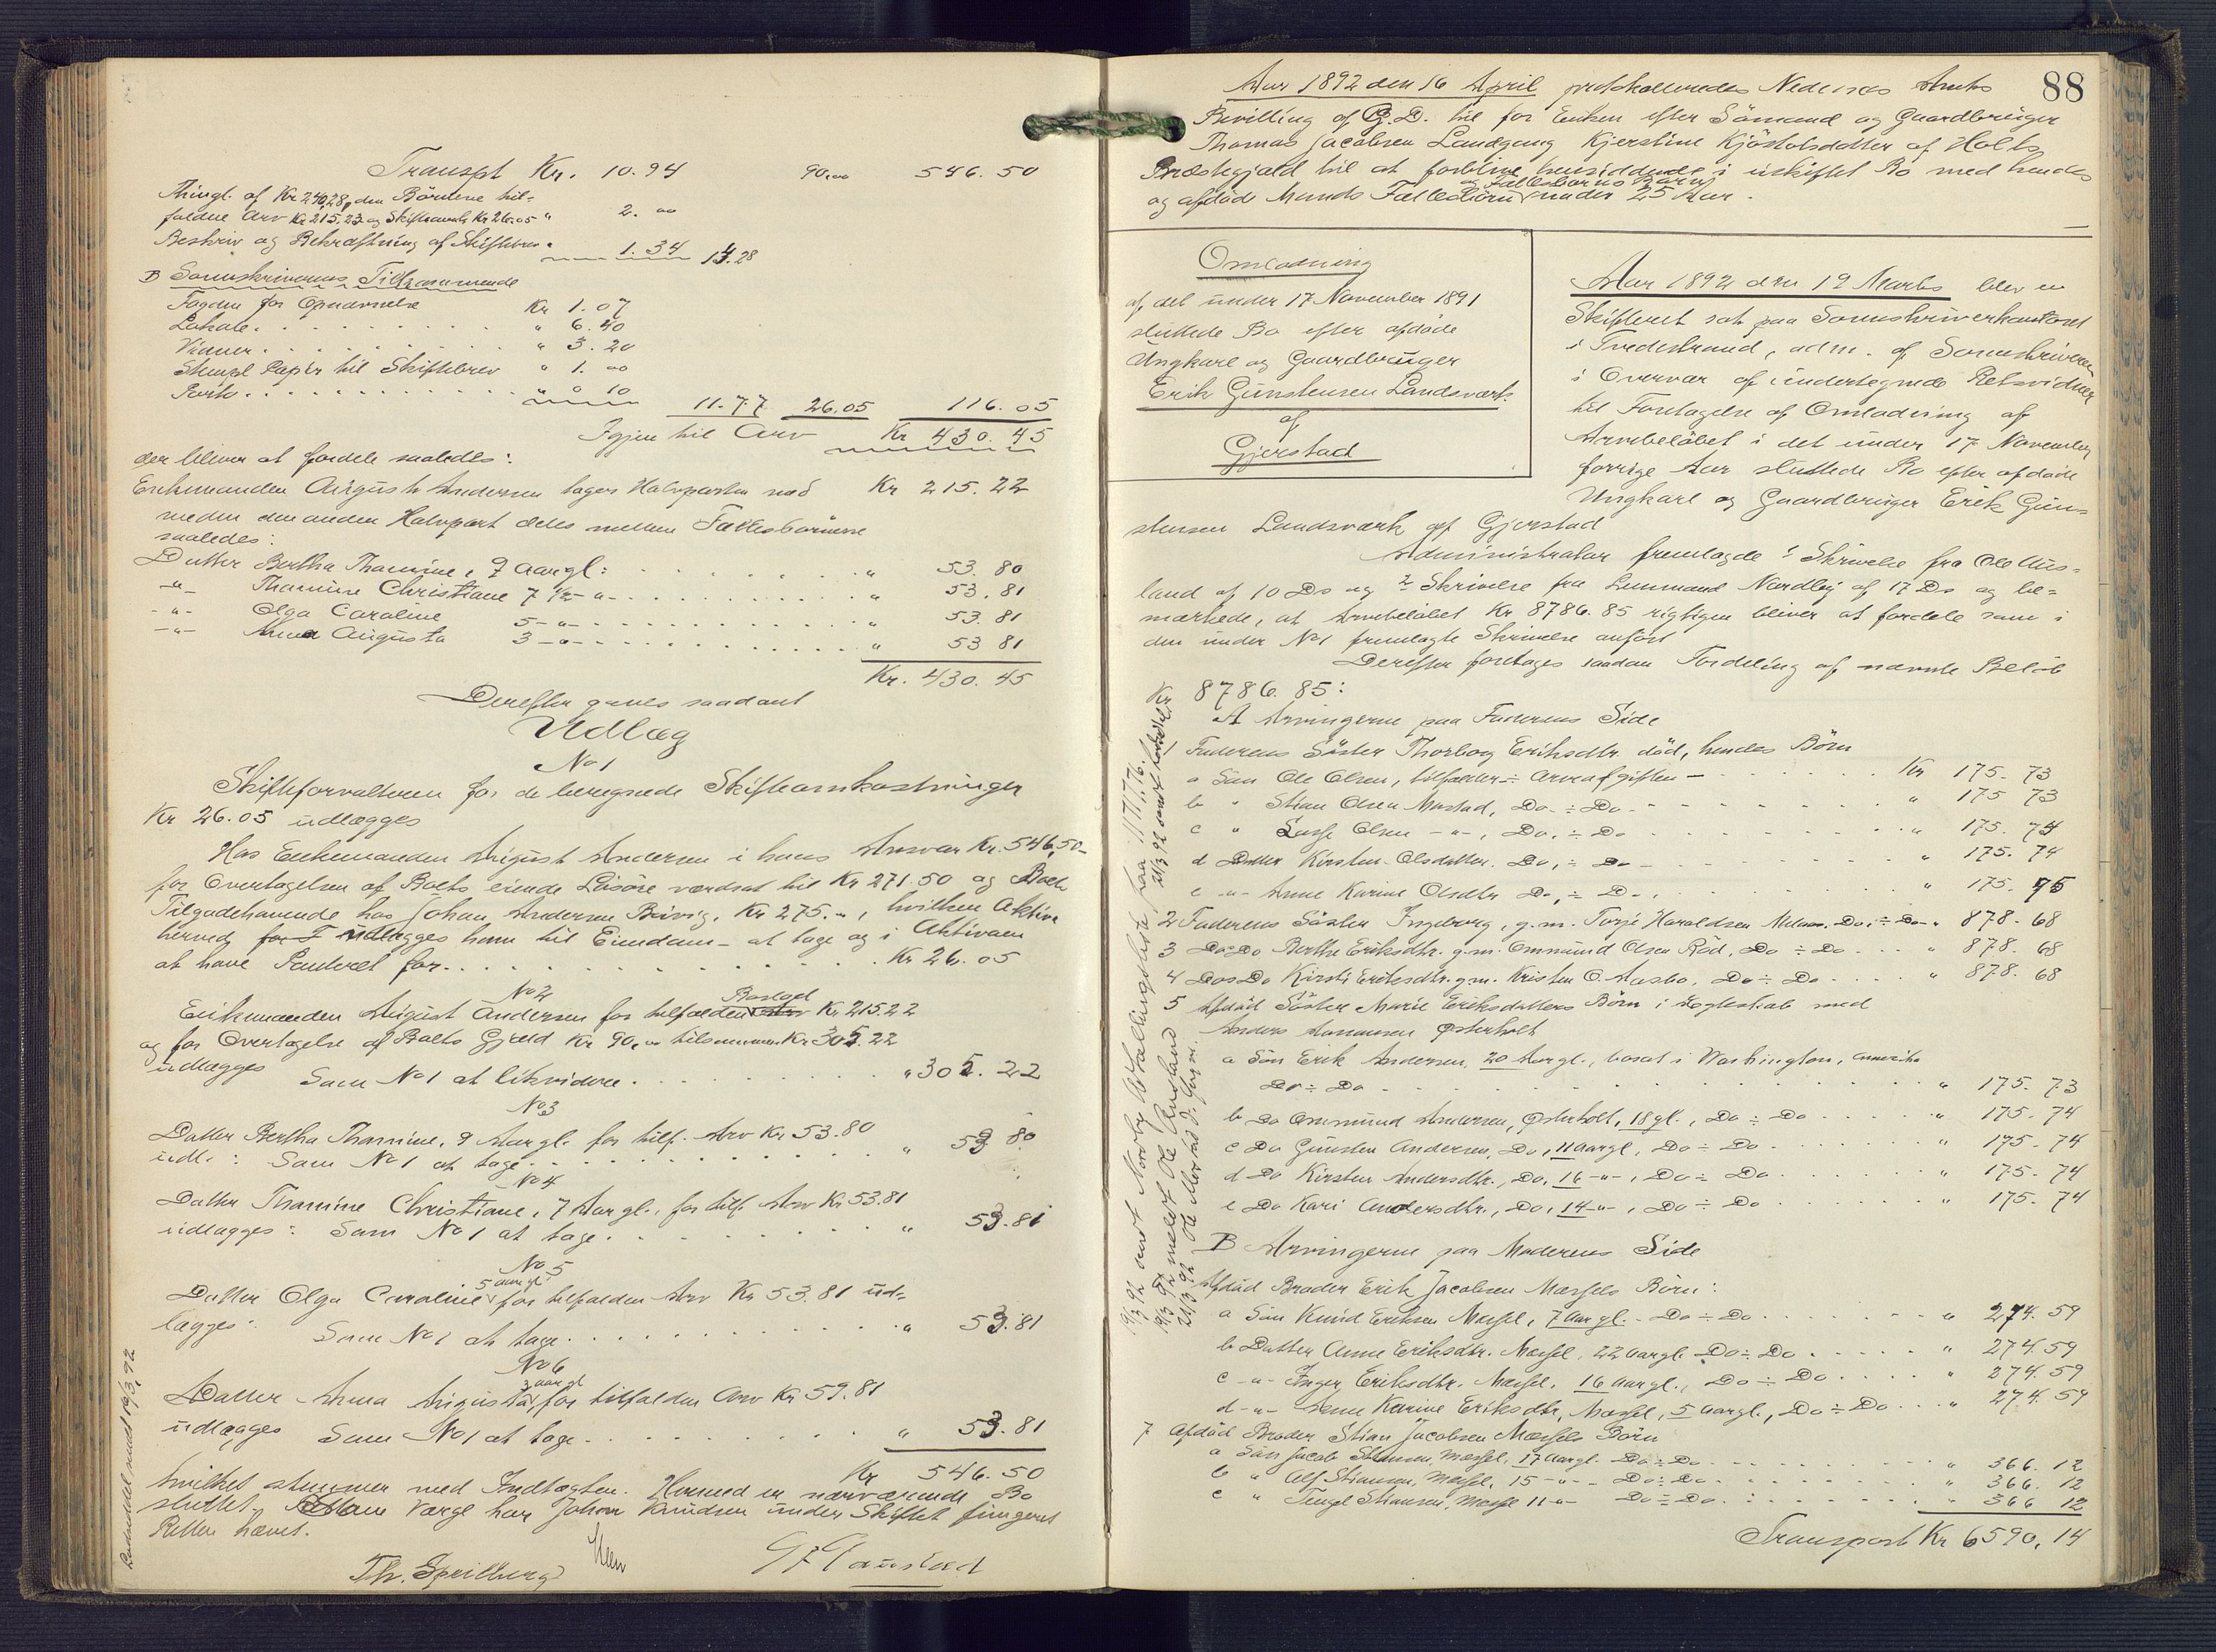 Transpt Kr. 10.94 90,00 546.50
Thingl. af Kr 240,28, den Börnene til-
faldne Arv Kr 215.23 og Skifteomk Kr 26.05 " 2. 00
Beskriv og Bekræftning af Skiftebrev " 1.34 14.28
B Sorenskriverens Tilkommende
Fogden for Opnævnelse Kr 1.07
Lokale " 6.40
Vidner " 3.20
Stempl Papir til Skiftebrev " 1. 00
Porto " 0 10
11.77 26.05 116.05
Igjen til Arv Kr 430.45
der bliver at fordele saaledes:
Enkemanden August Andersen tager Halvparten med Kr 215.22
medens den anden Halvpart deles mellem Fællesbörnene
saaledes:
Datter Bertha Thomine, 9 Aargl: " 53.80
-"- Thomine Christiane 7 1/2 -"- " 53.81
-"- Olga Caroline 5 -"- " 53.81
-"- Anna Augusta 3 -"- " 53 81
Kr. 430.45
Derefter gaves saadant
Udlæg
No 1
Skifteforvalteren for de beregnede Skifteomkostninger
Kr 26.05 udlægges
Hos Enkemanden August Andersen i hans Ansvar Kr. 546,50-
for Overtagelsen af Boets eiende Lösöre værdsat til Kr 271.50 og Boets
Tilgodehavende hos Johan Andersen Kr 275.-, hvilken Aktiva
herved for I udlægges ham til Eiendom - at tage og i Aktivaen
at have Panteret for Kr 26.05
No 2
Enkemanden August Andersen for tilfalden Arv Boslod Kr 215.22
og for Overtagelse af Boets Gjæld Kr 90,00 tilsammen Kr 305.22
udlægges Som No 1 at likvidere " 305.22
No 3
Datter Bertha Thomine, 9 Aargl. for tilf. Arv Kr 53.80
udl.: Som No 1 at tage " 53 80
No 4
Datter Thomine Christiane, 7 Aargl., for tilf. Arv Kr 53.81
udlægges: Som No 1 at tage " 53.81
No 5
Datter Olga Caroline 5 aargl for tilfalden Arv Kr 53.81 ud-
lægges: Som No 1 at tage " 53.81
No 6
Datter Anna Augusta 3 aargl for tilfalden Arv Kr 59.81
udlægges Som No 1 at tage " 53.81
Kr 546.50
hvilket stemmer med Indtægten. Hermed er nærværende Bo
sluttet. Som Værge har Johan Knudsen under Skiftet fungeret
Retten hævet.
Th. Speilberg
88
Aar 1892 den 16 April protokolleredes Nedenes Amts
Bevilling af G.D. til for Enken efter Sömand og Gaardbruger
Thomas Jacobsen Landgang Kjerstine Kjöstolsdatter af Holts
Præstegjæld til at forblive hensiddende i uskiftet Bo med hendes
og afdöde Mands Fællesbörn og Fællesbarns Börn under 25 Aar.
Omlodning
af det under 17 November 1891
sluttede Bo efter afdöde
Ungkarl og Gaardbruger
Erik Gunstensen Landsværk
af
Gjerstad
Aar 1892 den 19 Marts blev en
Skifteret sat paa Sorenskriverkontoret
i Tvedestrand, adm. af Sorenskriveren
i Overvær af undertegnede Retsvidner
til Foretagelse af Omlodning af
Arvebelöbet i det under 17 November
forrige Aar sluttede Bo efter afdöde
Ungkarl og Gaardbruger Erik Gun-
stensen Landsværk af Gjerstad
Administrator fremlagde 1 Skrivelse fra Ole Aus-
land af 10 Ds og 2 Skrivelse fra Lensmand Nordby af 17 Ds og be-
mærkede, at Arvebelöbet Kr 8786.85 rigtigen bliver at fordele som i
den under No 1 fremlagte Skrivelse anfört
Derefter foretages saadan Fordeling af nævnte Belöb
Kr 8786.85:
A Arvingerne paa Faderens Side
1 Faderens Söster Thorborg Eriksdtr. död, hendes Börn
a Sön Ole Olsen, tilfalder ÷ Arveafgiften - Kr 175.73
b " Stian Olsen Mostad, Do. ÷ Do - " 175 73
c " Lasse Olsen -"-, Do, ÷ Do " 175.74
d Datter Kirsten Olsdatter. Do, ÷ Do - " 175.74
e -"- Anne Karine Olsdtr Do, ÷ Do. " 175.75
2 Faderens Söster Ingeborg, g.m. Torje Haraldsen Do. ÷ Do " 878.68
3 Do Do Berthe Eriksdtr. g.m. Ommund Olsen Röd, Do ÷ Do " 878.68
4 Do Do Kirsti Eriksdtr. g.m. Kristen O. Aasbo, Do ÷ Do " 878.68
5 Afdöd Söster Marie Eriksdatters Börn i Ægteskab med
Anders Osterholt
a Sön Erik Andersen, 20 Aargl., bosat i Washington, Amerika
Do ÷ Do " 175.73
b Do Ommund Andersen, Osterholt, 18 gl., Do ÷ Do " 175.74
c Do Gunsten Andersen, Do, 11 aargl, Do ÷ Do " 175.74
d Do Kirsten Andersdtr., Do, 16 -"-, Do ÷ Do " 175.74
e Do Kari Andersdtr., Do, 14 -"-, Do ÷ Do " 175.74
B Arvingerne paa Moderens Side
Afdöd Broder Erik Jacobsen Mæsels Börn:
a Sön Knud Eriksen Mæsel, 7 aargl. - Do ÷ Do " 274.59
b Datter Anne Eriksdtr. Mæsel, 22 aargl. Do ÷ Do " 274.59
c -"- Inger Eriksdtr. Mæsel, 16 aargl., Do ÷ Do " 274.59
d -"- Anne Karine Eriksdtr, Mæsel, 5 aargl., Do ÷ Do " 274.59
7 Afdöd Broder Stian Jacobsen Mæsels Börn
a Sön Jacob Stiansen, Mæsel, 17 aargl. Do ÷ Do " 366.12
b " Alf Stiansen, Mæsel, 15 -"- Do ÷ Do " 366.12
c " Tengel Stiansen, Mæsel 11 -"- Do ÷ Do " 366 12
Transport Kr 6590,14